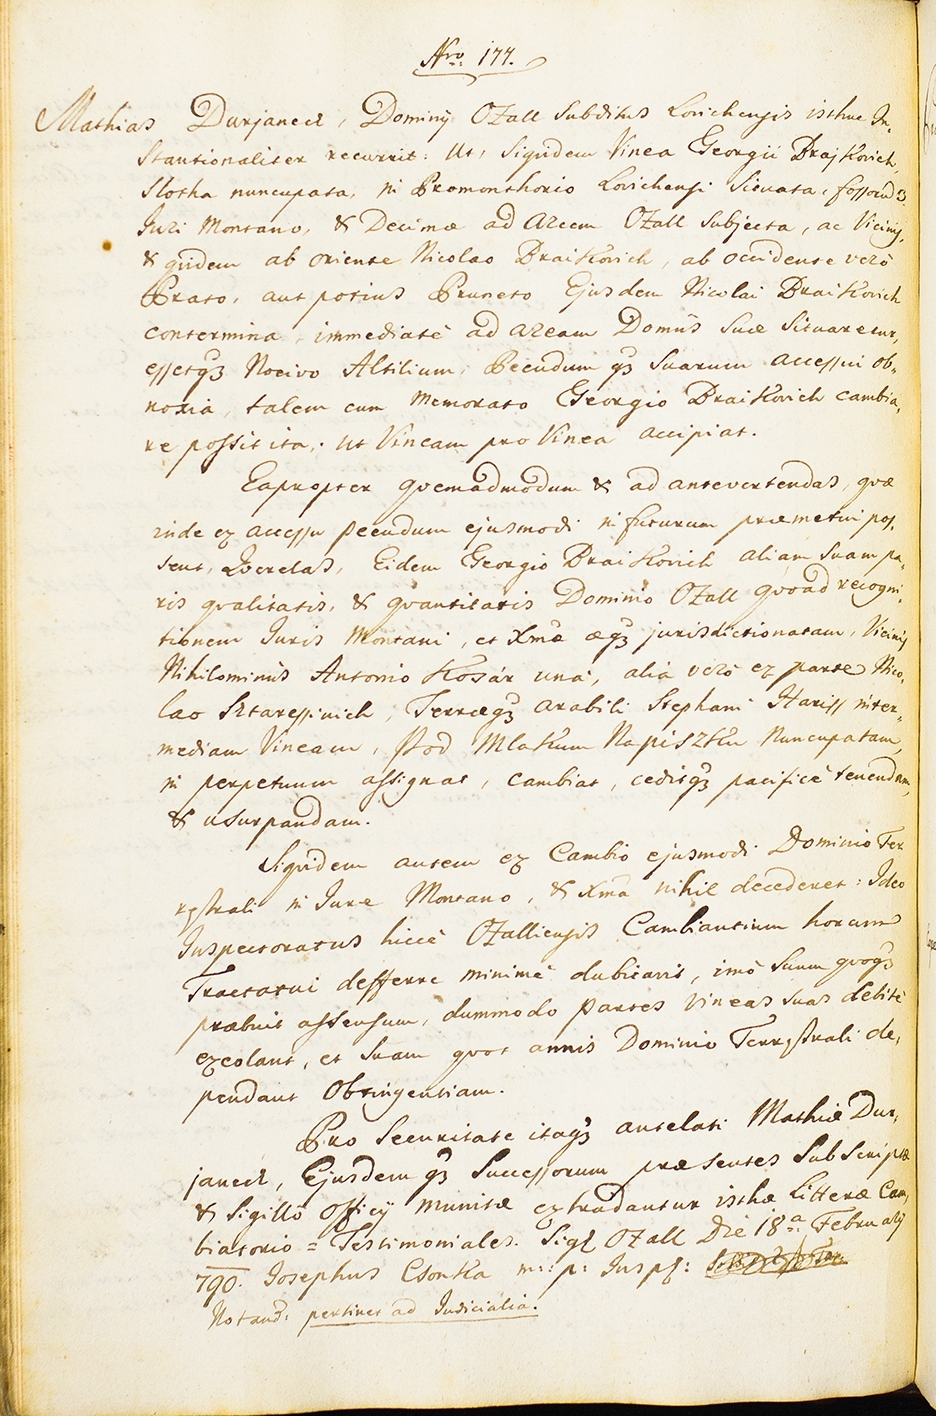 Nro: 177.
Mathias Durjanecz, Dominij Ozall Subditus Lovichensis isthuc In,
stantionaliter recurrit: Ut, siquidem Vinea Georgii Brajkovich,
Slotka nuncupata, in Promonthorio Lovichensi situata, fossorum 3.
Juri Montano, & Decimae ad Arcem Ozall subjecta, ac Vicinis,
& quidem ab oriente Nicolao Braikovich, ab occidente verò
Prato, aut potius Pruneto Ejusdem Nicolai Braikovich
contermina, immediatè ad aream Domûs suae situaretur,
essetq3 Nocivo Altilium, Pecudum q3 suarum accessui ob,
noxia, talem cum memorato Georgio Braikovich cambia,
re possit ita: ut Vineam pro Vinea accipiat.
Eapropter quemadmodum & ad antevertendas, quae
inde ex accessu pecudum ejusmodi in futurum praemetui pos,
sent, Querelas, Eidem Georgio Braikovich aliam suam pa,
ris qualitatis, & quantitatis Dominio Ozall quoad recogni,
tionem Juris Montani, et Xmae aeq3 jurisdictionatam, Vicinis
Nihilominùs Antonio Kosár unâ, aliâ verò ex parte Nico,
lao Sztaressinich, Terraeq3 arabili Stephani Hariss inter,
mediam Vineam, Pod Mlakum Napiszku Nuncupatam,
in perpetuum assignat, cambiat, ceditq3 pacificè tenendam,
& usurpandam.
Siquidem autem ex Cambio ejusmodi Dominio Ter
restrali in Jure Montano, & Xma nihil decederet: Ideo
Inspectoratus hicce Ozalliensis Cambiantium horum
Tractatui defferre minimè dubitavit, imò suum quoq3
praebuit assensum, dummodo Partes Vineas suas debitè
excolant, et suam quot annis Dominio Terrestrali de,
pendant Obtingentiam.
Pro Securitate itaq3 antelati Mathiae Dur,
janecz, Ejusdem q3 Successorum praesentes Subscriptae
& Sigillo Officij munitae extradantur isthae Litterae Cam,
biatorio = Testimoniales. Sigl Ozall Die 18a: Februarij
790. Josephus Csonka m: p: Insps:
Notand: pertinet ad Judicialia.